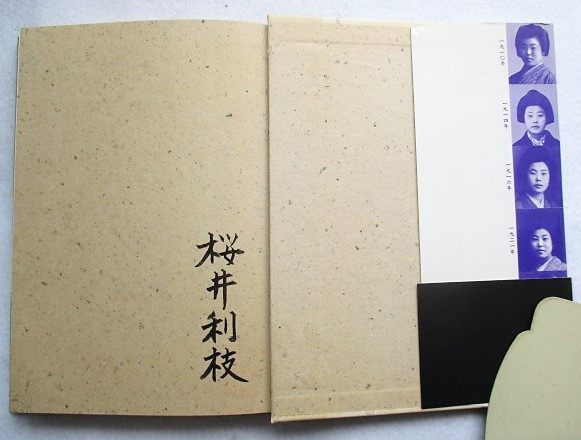 桜井利枝
一九一〇年
一九一四年
一九一六年
一九二一年